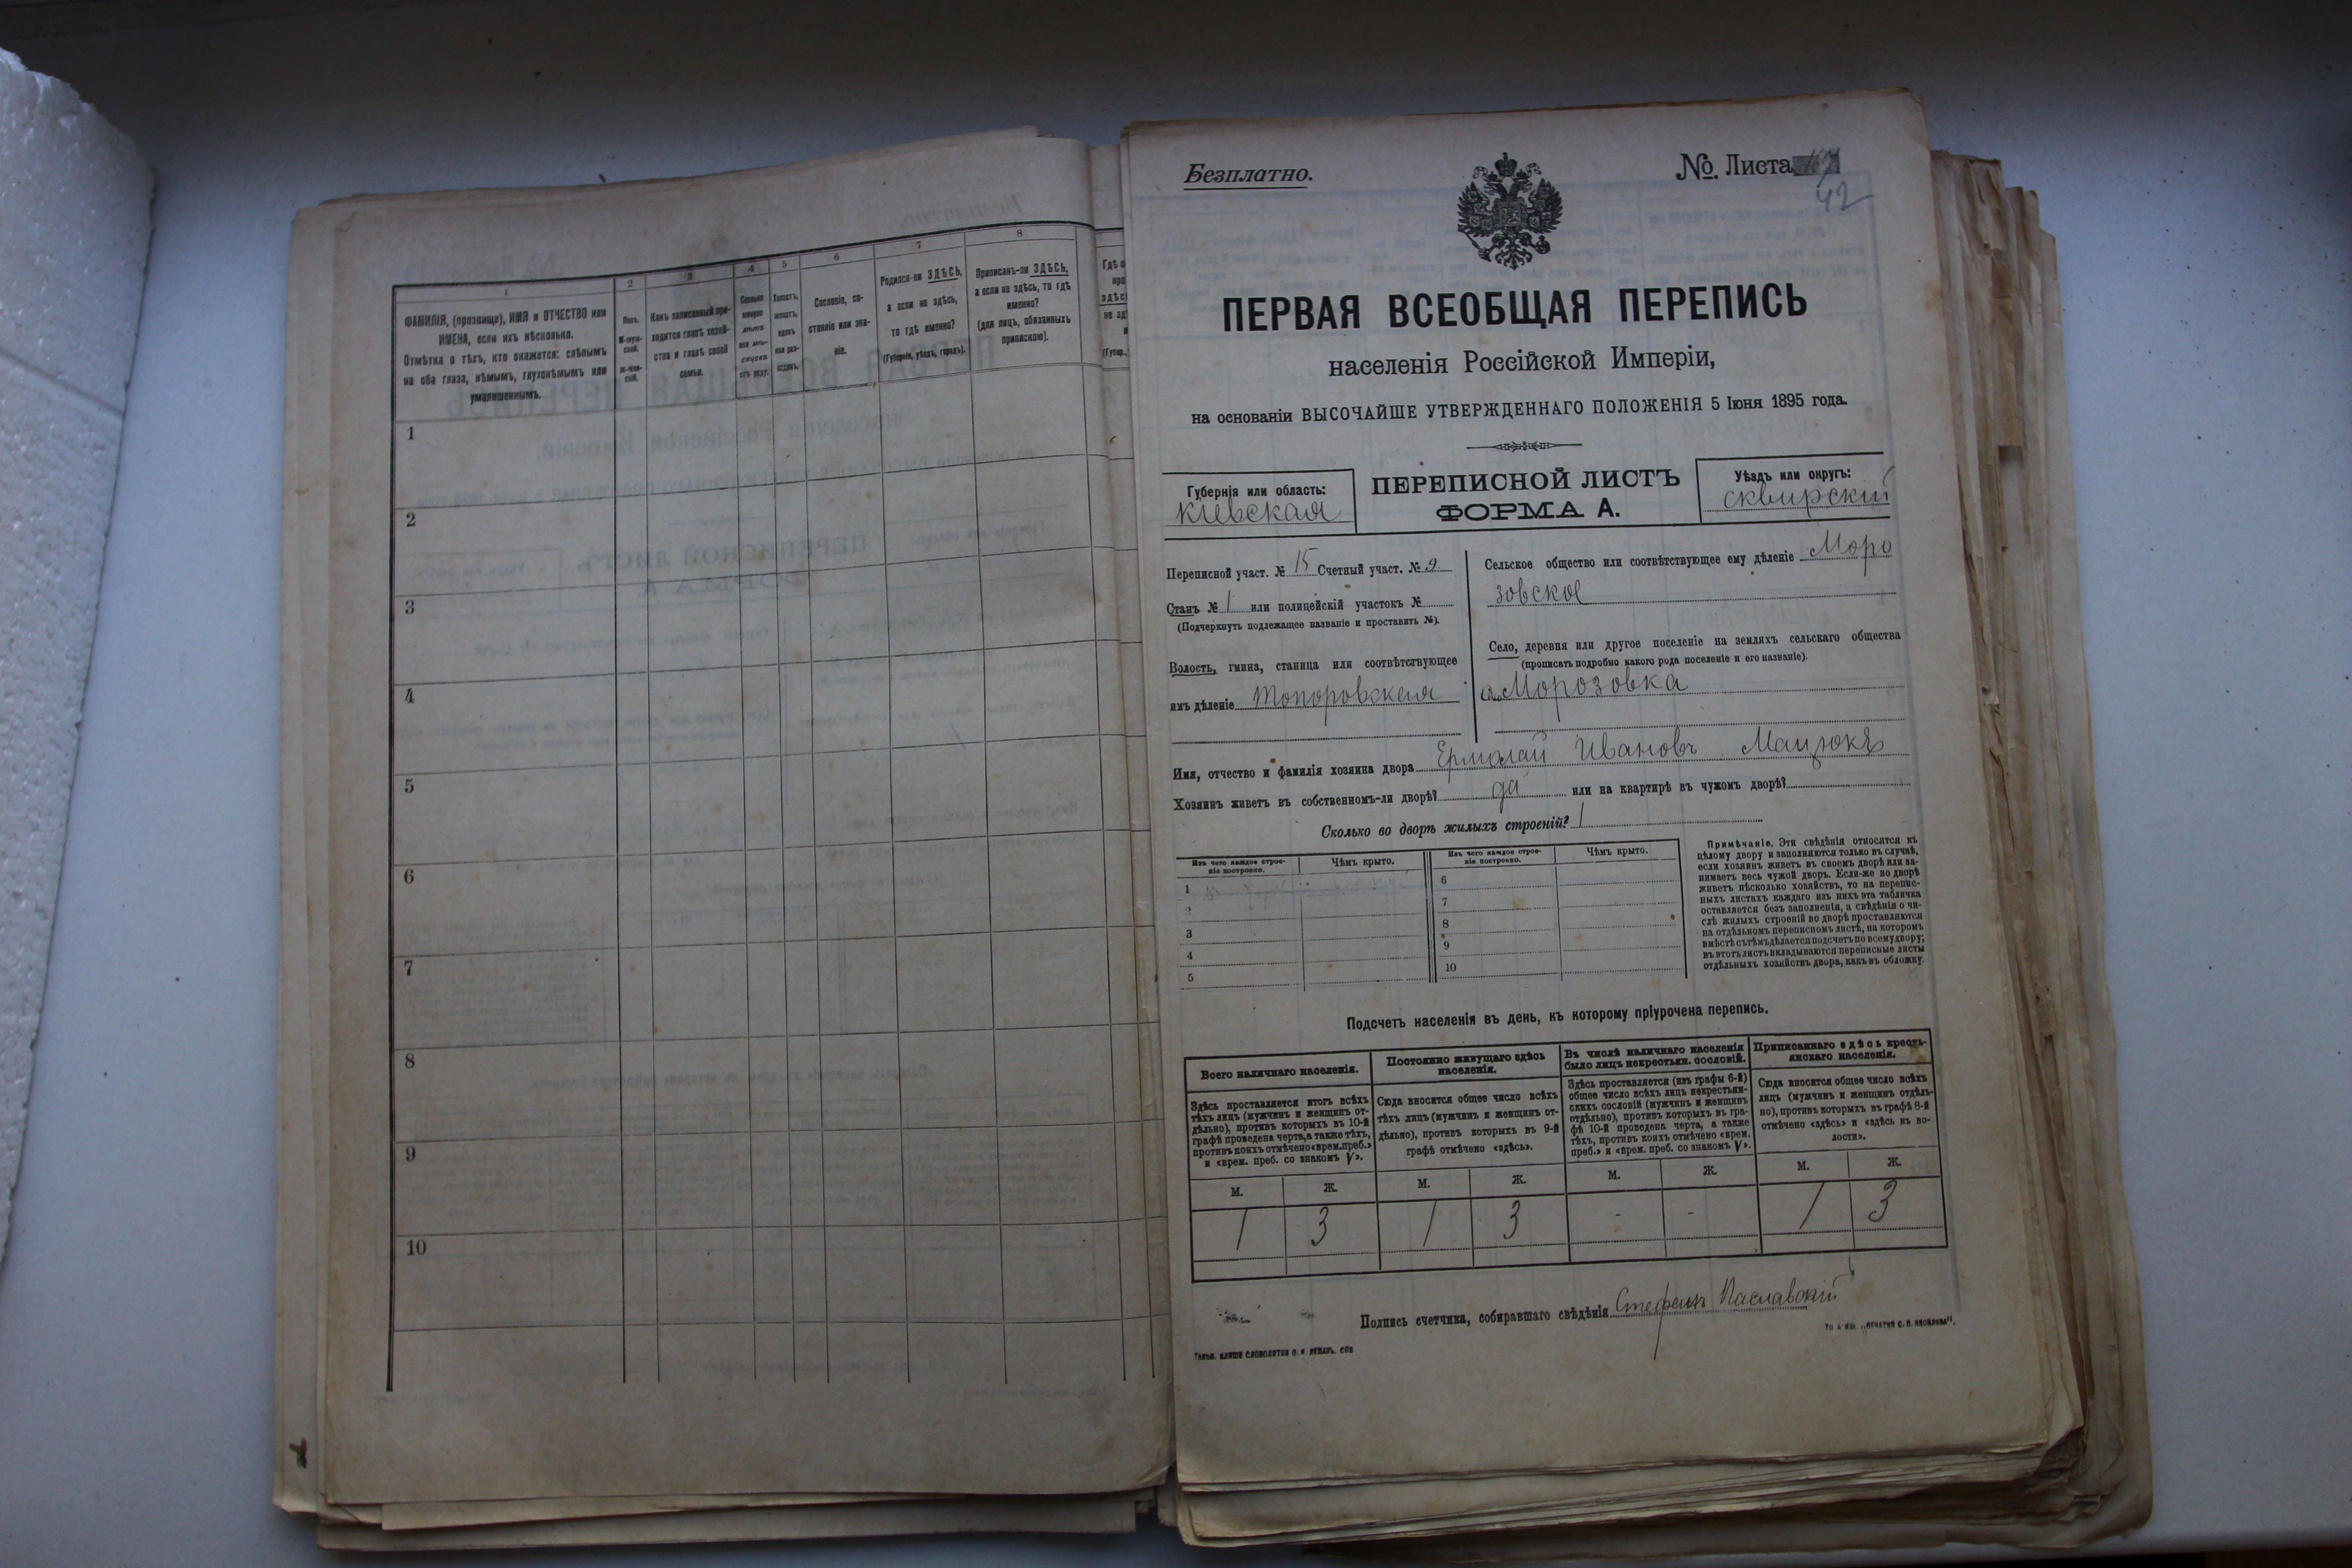 1
2
3
4
5
6
7
8
ФАМИЛІЯ, (прозвище), ИМЯ и ОТЧЕСТВО или
ИМЕНА, если ихъ нѣсколько.
Отмѣтка о тѣхъ, кто окажется: слѣпымъ
на оба глаза, нѣмымъ, глухонѣмымъ или
умалишеннымъ.
Полъ.
Какъ записанный при-
ходится главѣ хозяй-
ства и главѣ своей
семьи.
Сословіе, со-
стояніе или зва-
ніе.
Родился-ли ЗДѢСЬ,
а если не здѣсь,
то гдѣ именно?
(Губернія, уѣздъ, городъ).
Приписанъ-ли ЗДѢСЬ,
а если не здѣсь, то гдѣ
именно?
(для лицъ, обязанныхъ
припискою).
1
2
3
4
5
6
7
8
9
10
Безплатно.
№. Листа
42
ПЕРВАЯ ВСЕОБЩАЯ ПЕРЕПИСЬ
населенія Россійской Имперіи,
на основаніи ВЫСОЧАЙШЕ УТВЕРЖДЕННАГО ПОЛОЖЕНІЯ 5 Іюня 1895 года.
Губернія или область:
Кіевская
ПЕРЕПИСНОЙ ЛИСТЪ
ФОРМА А.
Уѣздъ или округъ:
Сквирский
Переписной участ. № 15 Счетный участ. № 9
Станъ № 1 или полицейскій участокъ №
(Подчеркнуть подлежащее названіе и проставить №).
Волость, гмина, станица или соотвѣтствующее
имъ дѣленіе Топоровская
Сельское общество или соотвѣтствующее ему дѣленіе Моро
зовское
Село, деревня или другое поселеніе на земляхъ сельскаго общества
(прописать подробно какого рода поселеніе и его названіе).
с. Морозовка
Имя, отчество и фамилія хозяина двора Ермолай Ивановъ Мацюкъ
Хозяинъ живетъ въ собственномъ-ли дворѣ? да или на квартирѣ въ чужомъ дворѣ?
Сколько во дворѣ жилыхъ строеній? 1
Изъ чего каждое строе-
ніе построено.
Чѣмъ крыто.
Изъ чего каждое строе-
ніе построено.
Чѣмъ крыто.
1
2
3
4
5
6
7
8
9
10
Примѣчаніе. Эти свѣдѣнія относятся къ
цѣлому двору и заполняются только въ случаѣ,
если хозяинъ живетъ въ своемъ дворѣ или за-
нимаетъ весь чужой дворъ. Если-же во дворѣ
живетъ нѣсколько хозяйствъ, то на перепис-
ныхъ листахъ каждаго изъ нихъ эта табличка
оставляется безъ заполненія, а свѣдѣнія о чи-
слѣ жилыхъ строеній во дворѣ проставляются
на отдѣльномъ переписномъ листѣ, на которомъ
вмѣстѣ съ тѣмъ дѣлается подсчетъ по всему двору;
въ этотъ листъ вкладываются переписные листы
отдѣльныхъ хозяйствъ двора, какъ въ обложку.
Подсчетъ населенія въ день, къ которому пріурочена перепись.
Всего наличнаго населенія.
Здѣсь проставляется итогъ всѣхъ
тѣхъ лицъ (мужчинъ и женщинъ от-
дѣльно), противъ которыхъ въ 10-й
графѣ проведена черта, а также тѣхъ,
противъ коихъ отмѣчено «врем. преб.»
и «врем. преб. со знакомъ V».
Постоянно живущаго здѣсь
населенія.
Сюда вносится общее число всѣхъ
тѣхъ лицъ (мужчинъ и женщинъ от-
дѣльно), противъ которыхъ въ 9-й
графѣ отмѣчено «здѣсь».
Въ числѣ наличнаго населенія
было лицъ некрестьян. сословій.
Здѣсь проставляется (изъ графы 6-й)
общее число всѣхъ лицъ некрестьян-
скихъ сословій (мужчинъ и женщинъ
отдѣльно), противъ которыхъ въ гра-
фѣ 10-й проведена черта, а также
тѣхъ, противъ коихъ отмѣчено «врем.
преб.» и «врем. преб. со знакомъ V».
Приписаннаго здѣсь кресть-
янскаго населенія.
Сюда вносится общее число всѣхъ
лицъ (мужчинъ и женщинъ отдѣль-
но), противъ которыхъ въ графѣ 8-й
отмѣчено «здѣсь» и «здѣсь въ во-
лости».
М. Ж. М. Ж. М. Ж. М. Ж.
1 3 1 3 - - 1 3
Подпись счетчика, собиравшаго свѣдѣнія Стефанъ Паславскій